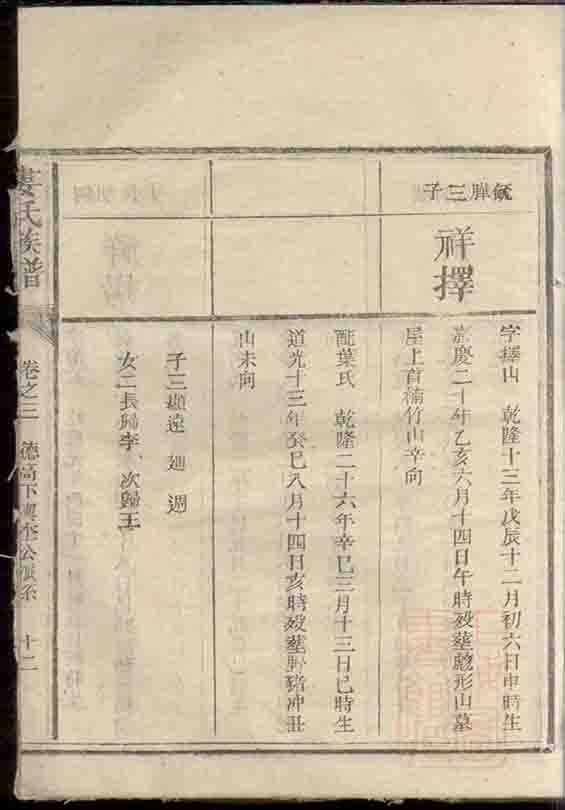 毓脌三子
祥擇
字擇山 乾隆十三年戊辰十二月初六日申時生
嘉慶二十年乙亥六月十四日午時歿塟 形山墓
屋上首楠竹山辛向
配葉氏 乾隆二十六年辛巳三月十三日巳時生
道光十三年癸巳八月十四日亥時歿塟野猪冲丑
山未向
子三顯遠 廸 週
女二長歸李 次歸王
婁氏族譜
卷之三
德高下 公派系
十二